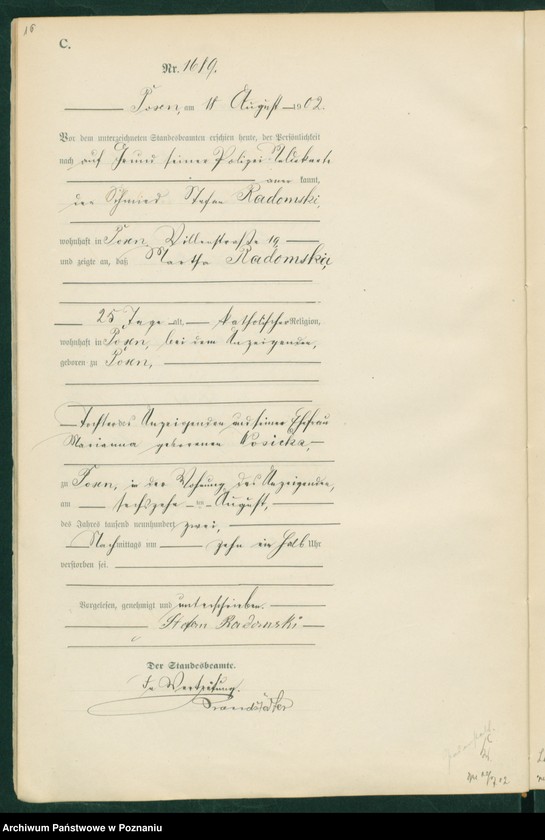 16
C.
Nr. 1619.
Posen, am 18 August 1902.
Vor dem unterzeichneten Standesbeamten erschien heute, der Persönlichkeit
nach auf Grund seiner Polizei Meldekarte
aner kannt,
der Schmied Stefan Radomski,
wohnhaft in Posen, Villenstraße 19
und zeigte an, daß Martha Radomski,
25 Tage alt, katholischer Religion,
wohnhaft in Posen, bei dem Anzeigenden,
geboren zu Posen,
Tochter des Anzeigenden und seiner Ehefrau
Marianna geborenen Nosicka,
zu Posen, in der Wohnung des Anzeigenden,
am sechszehn ten August,
des Jahres tausend neunhundert zwei,
Nachmittags um zehn ein halb Uhr
verstorben sei.
Vorgelesen, genehmigt und unterschrieben.
Stefan Radomski
Der Standesbeamte.
In Vertretung.
Archiwum Państwowe w Poznaniu